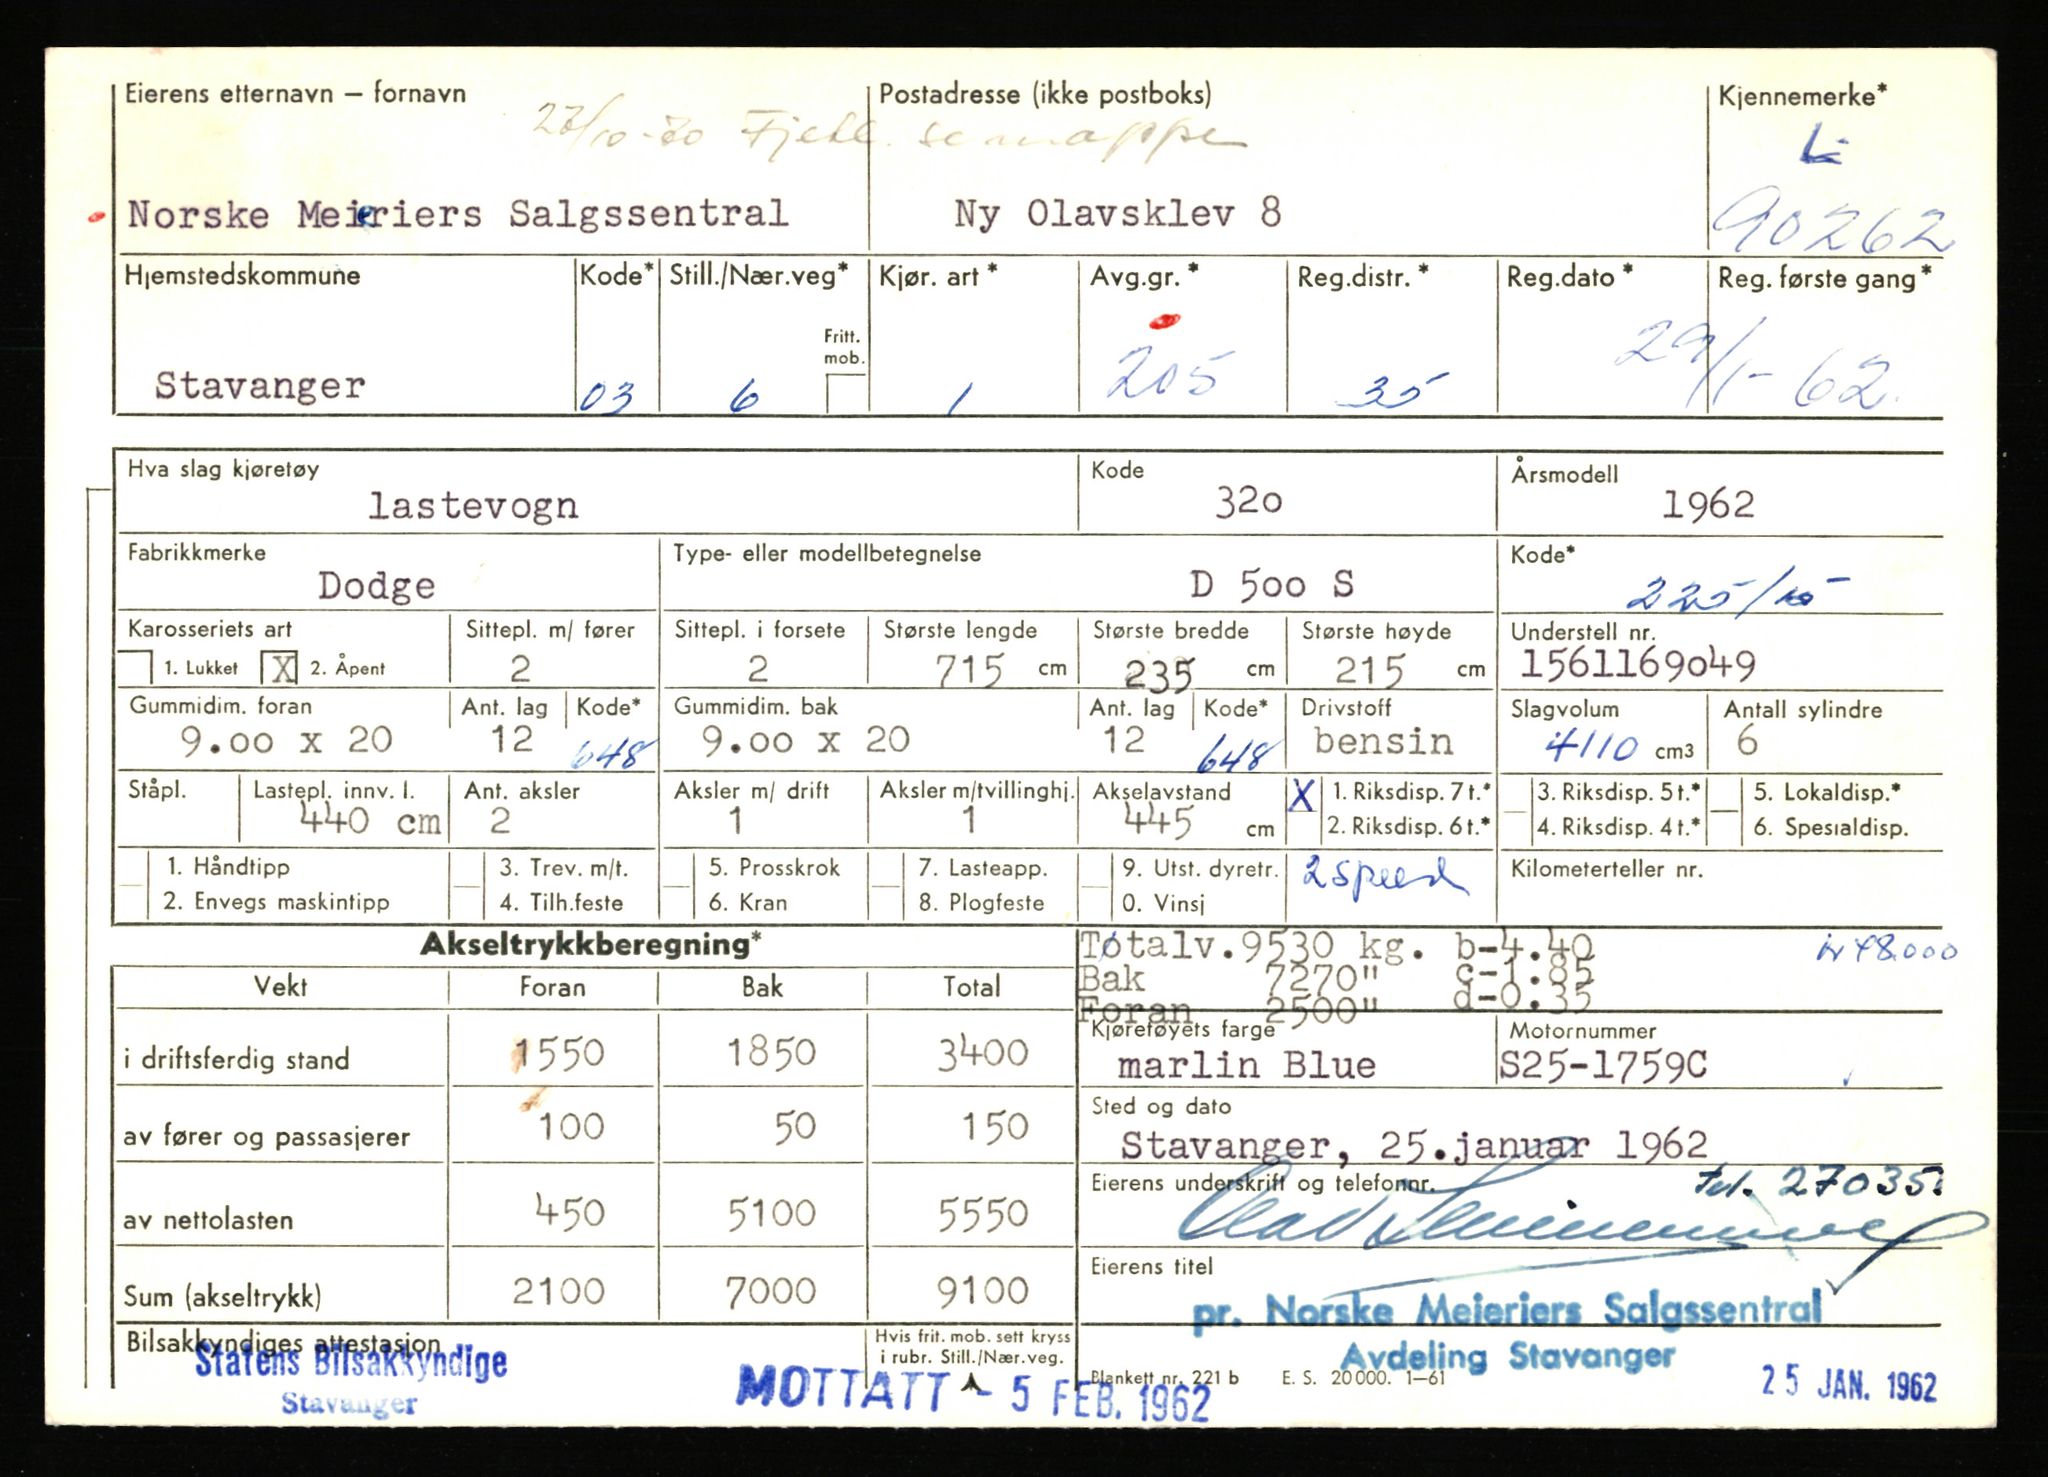 Eierens etternavn — fornavn Postadresse (ikke postboks) Kjennemerke*
27/10-70 Fjell. se mappe L-
Norske Meieriers Salgssentral Ny Olavsklev 8 90262
Hjemstedskommune Kode* Still./Nær.veg* Kjør. art* Avg.gr.* Reg.distr.* Reg.dato* Reg. første gang*
Fritt.
mob.
Stavanger 03 6 1 205 35 29/1-62.
Hva slag kjøretøy Kode Årsmodell
lastevogn 320 1962
Fabrikkmerke Type- eller modellbetegnelse Kode*
Dodge D 500 S 225/10
Karosseriets art Sittepl. m/ fører Sittepl. i forsete Største lengde Største bredde Største høyde Understell nr.
1. Lukket X 2. Åpent 2 2 715 cm 235 cm 215 cm 1561169049
Gummidim. foran Ant. lag Kode* Gummidim. bak Ant. lag Kode* Drivstoff Slagvolum Antall sylindre
9.00 x 20 12 648 9.00 x 20 12 648 bensin 4110 cm3 6
Ståpl. Lastepl. innv. l. Ant. aksler Aksler m/ drift Aksler m/tvillinghj. Akselavstand X 1. Riksdisp. 7 t.* 3. Riksdisp. 5 t.* 5. Lokaldisp.*
440 cm 2 1 1 445 cm 2. Riksdisp. 6 t.* 4. Riksdisp. 4 t.* 6. Spesialdisp.
1. Håndtipp 3. Trev. m/t. 5. Prosskrok 7. Lasteapp. 9. Utst. dyretr. 2 speed Kilometerteller nr.
2. Envegs maskintipp 4. Tilh.feste 6. Kran 8. Plogfeste 0. Vinsj
Akseltrykkberegning* Totalv. 9530 kg. b-4.40 48.000
Bak 7270" c-1.85
Foran 2500" d-0.35
Vekt Foran Bak Total
Kjøretøyets farge Motornummer
i driftsferdig stand 1550 1850 3400 marlin Blue S25-1759C
Sted og dato
av fører og passasjerer 100 50 150 Stavanger, 25.januar 1962
Eierens underskrift og telefonnr. tel. 27035
av nettolasten 450 5100 5550
Eierens titel
Sum (akseltrykk) 2100 7000 9100 pr. Norske Meieriers Salgssentral
Avdeling Stavanger
Bilsakkyndiges attestasjon Hvis frit. mob. sett kryss
i rubr. Still./Nær.veg.
Statens Bilsakkyndige
Stavanger
MOTTATT - 5 FEB. 1962
Plankett nr. 221 b E. S. 20 000. 1—61 25 JAN. 1962